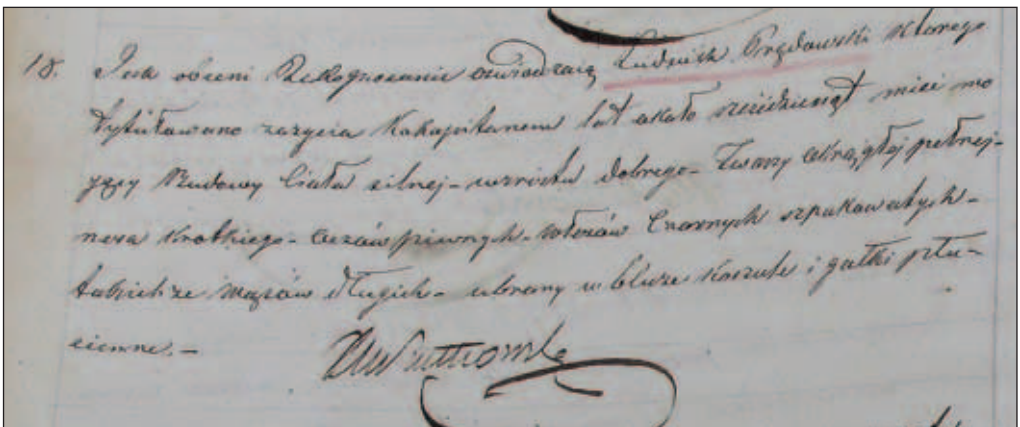 18. Jest obecni Rekognoscanie oświadczają Ludwik Prędowski którego
tytułowano zażycia Kakapitanem lat około sześćdziesiąt mieć mo
jący Budowy Ciała silnej – wzrostu dobrego – Twarzy okrągłej pełnej –
nosa krotkiego – oczów piwnych – włosów Czarnych szpakowatych –
takichże wąsów długich – ubrany w bluze koszule i gatki płu-
cienne. –